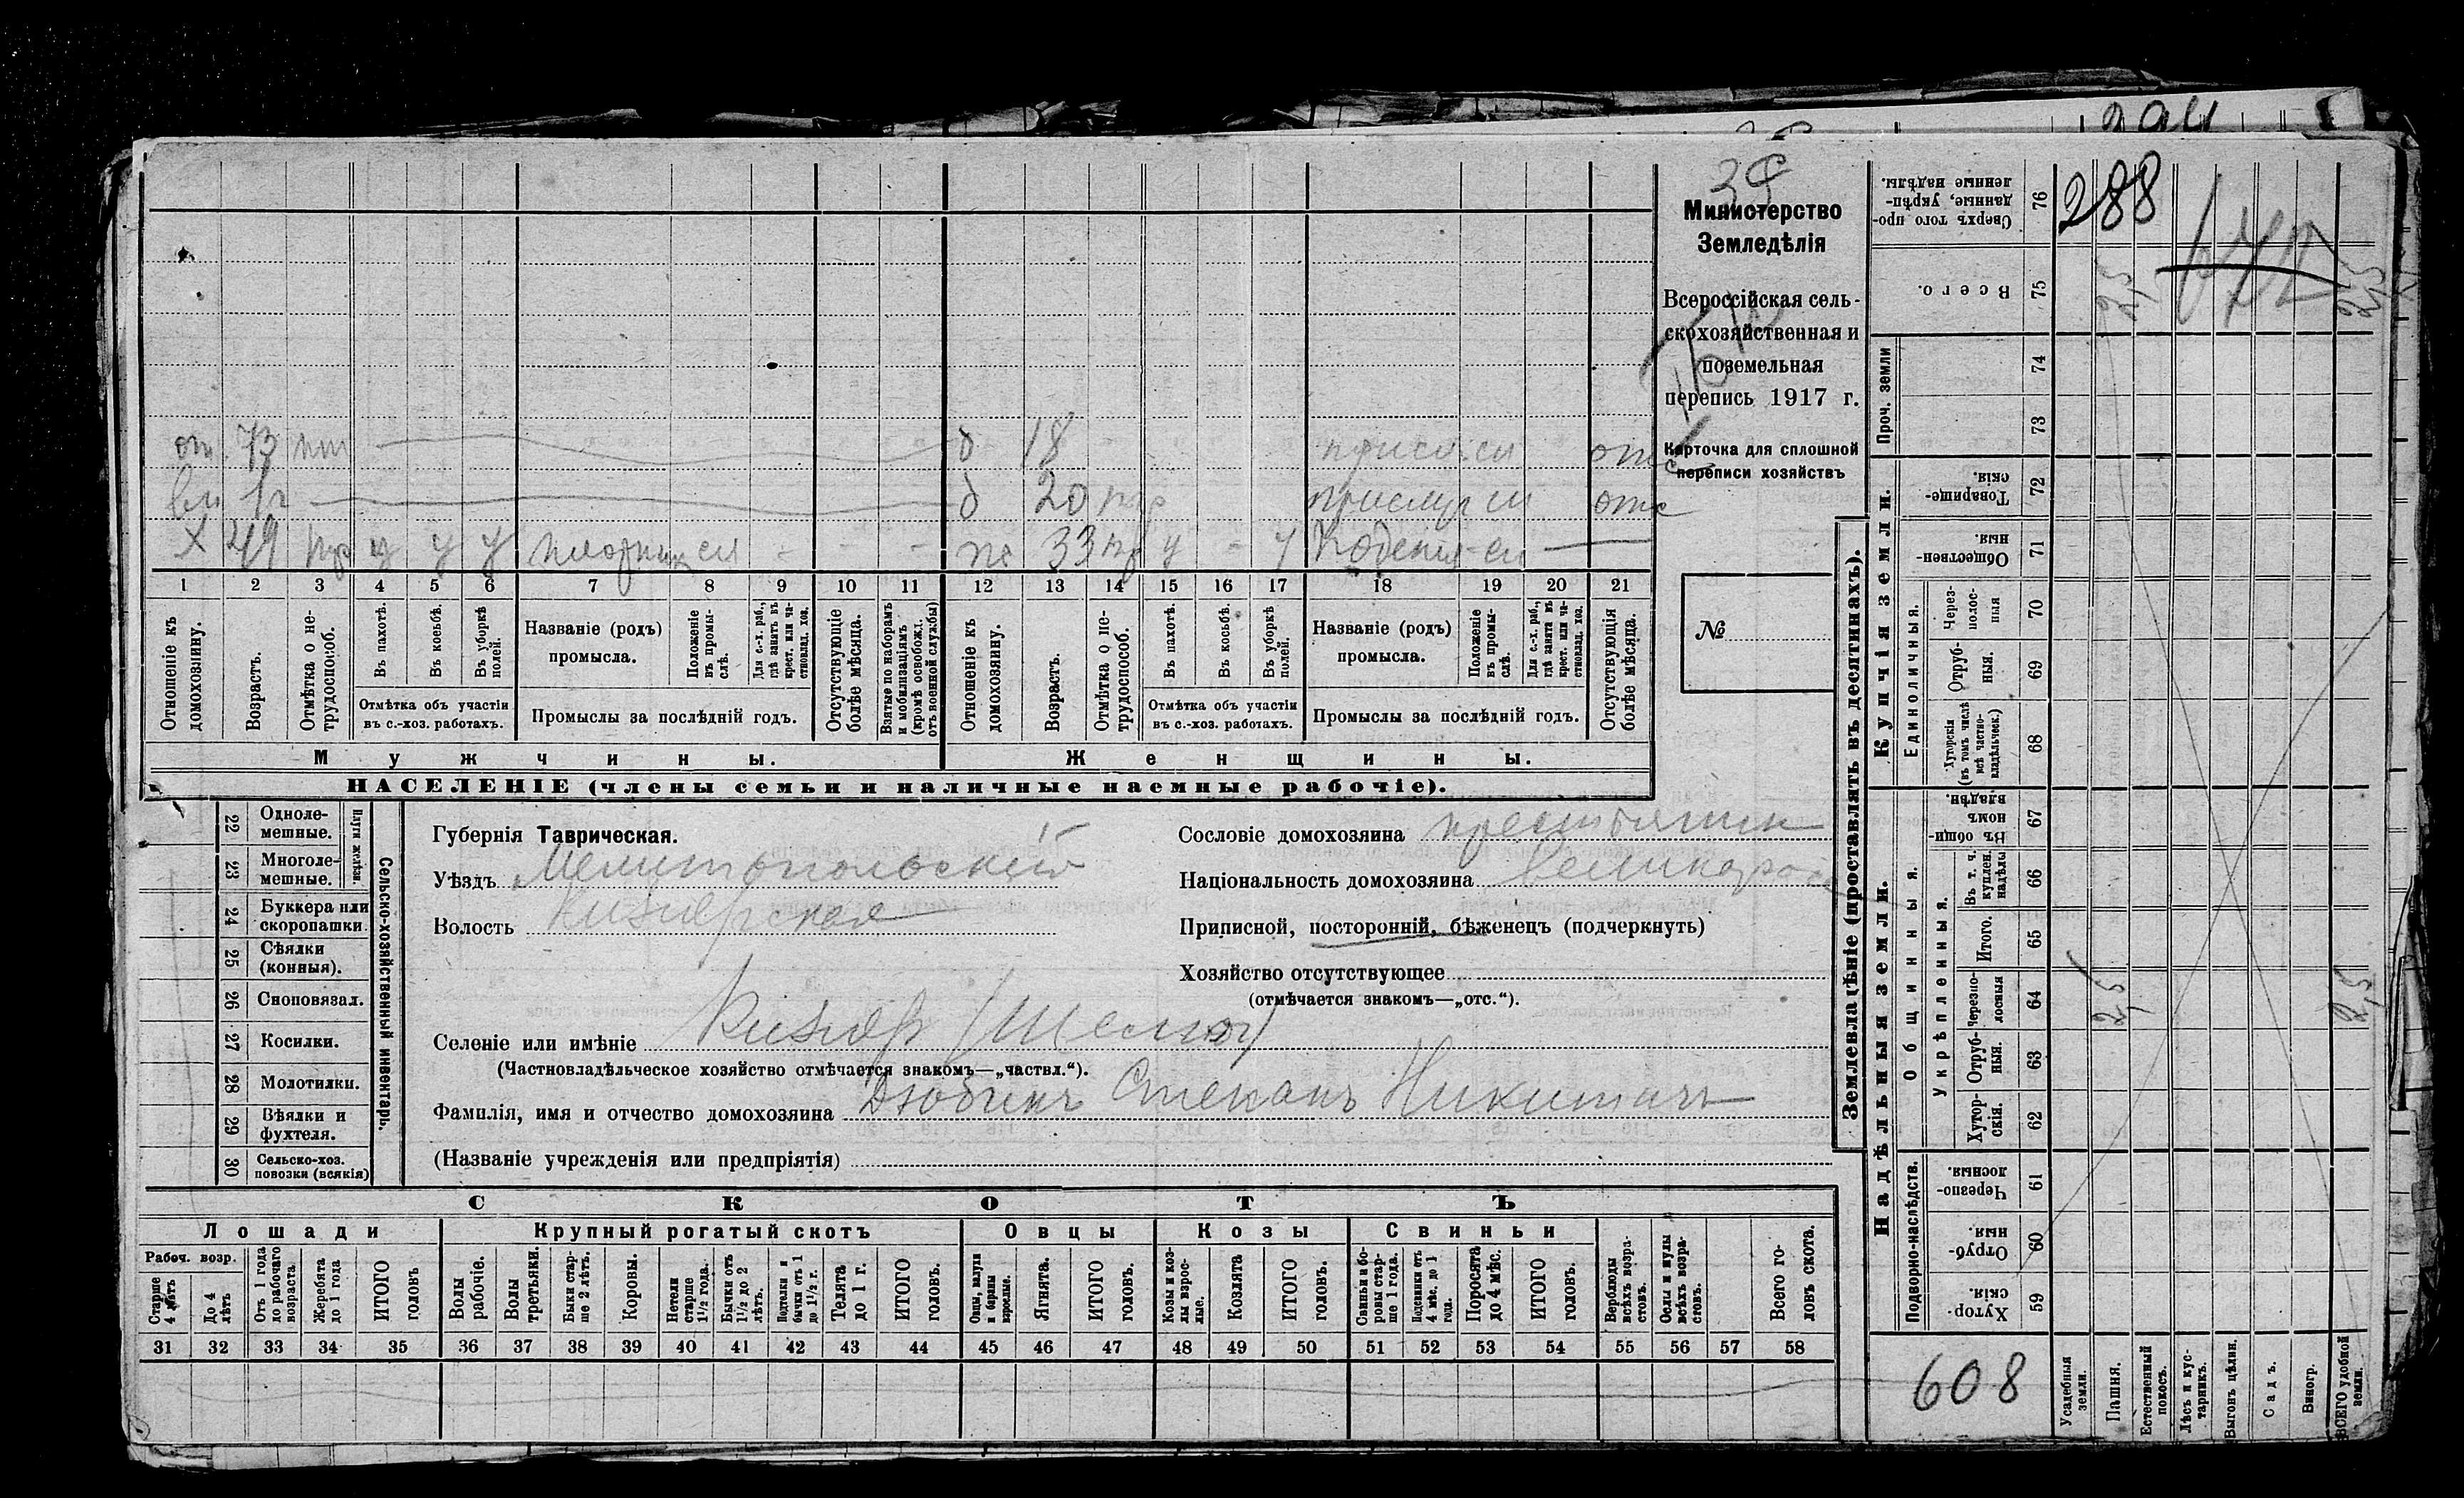 294
288
39
Министерство
Земледѣлія
Всероссійская сель-
скохозяйственная и
поземельная
перепись 1917 г.
Карточка для сплошной
переписи хозяйствъ
№
от. 73 д 18 отс
1 г д 20 отс
X 49 у у у 33 у - у
1 2 3 4 5 6 7 8 9 10 11 12 13 14 15 16 17 18 19 20 21
Отношеніе къ домохозяину.
Возрастъ.
Отмѣтка о не-трудоспособ.
Въ пахотѣ.
Въ косьбѣ.
Въ уборкѣ полей.
Отмѣтка объ участіи въ с.-хоз. работахъ.
Названіе (родъ) промысла.
Положеніе въ промы-слѣ.
Для с.-х. раб., гдѣ занятъ въ крест. или ча-стновлад. хоз.
Промыслы за послѣдній годъ.
Отсутствующіе болѣе мѣсяца.
Взятые по наборамъ и мобилизаціямъ (кромѣ освобожд. отъ военной службы)
Отношеніе къ домохозяину.
Возрастъ.
Отмѣтка о не-трудоспособ.
Въ пахотѣ.
Въ косьбѣ.
Въ уборкѣ полей.
Отмѣтка объ участіи въ с.-хоз. работахъ.
Названіе (родъ) промысла.
Положеніе въ промы-слѣ.
Для с.-х. раб., гдѣ занята въ крест. или ча-стновлад. хоз.
Промыслы за послѣдній годъ.
Отсутствующія болѣе мѣсяца.
Мужчины.
Женщины.
НАСЕЛЕНІЕ (члены семьи и наличные наемные рабочіе).
22 Одноле-мешные.
23 Многоле-мешные.
Плуги желѣзн.
24 Буккера или скоропашки
25 Сѣялки (конныя).
26 Сноповязал.
27 Косилки.
28 Молотилки.
29 Вѣялки и фухтеля.
30 Сельско-хоз. повозки (всякія)
Сельско-хозяйственный инвентарь.
Губернія Таврическая.
Уѣздъ Мелитопольскій
Волость Кизіярская
Селеніе или имѣніе Кизіяр
(Частновладѣльческое хозяйство отмѣчается знакомъ—„частвл.“).
Фамилія, имя и отчество домохозяина Степанъ Никитичъ
(Названіе учрежденія или предпріятія)
Сословіе домохозяина крестьянин
Національность домохозяина великоросс
Приписной, посторонній, бѣженецъ (подчеркнуть)
Хозяйство отсутствующее
(отмѣчается знакомъ—„отс.“).
СКОТЪ
Лошади
Крупный рогатый скотъ
Овцы
Козы
Свиньи
Рабоч. возр.
Старше 4 лѣтъ
До 4 лѣтъ
Отъ 1 года до рабочаго возраста
Жеребята до 1 года
ИТОГО головъ
Волы рабочіе.
Волы третьяки.
Быки стар-ше 2 лѣтъ.
Коровы.
Нетели старше 1½ года.
Бычки отъ 1½ до 2 лѣтъ.
Подтелки и бычки отъ 1 до 1½ г.
Телята до 1 г.
ИТОГО головъ.
Овцы, валухи и бараны взрослые.
Ягнята.
ИТОГО головъ.
Козы и коз-лы взрос-лые.
Козлята
ИТОГО головъ.
Свиньи и бо-ровы стар-ше 1 года.
Подсвинки отъ 4 мѣс. до 1 года.
Поросята до 4 мѣс.
ИТОГО головъ.
Верблюды всѣхъ возра-стовъ.
Ослы и мулы всѣхъ возра-стовъ.
Всего го-ловъ скота.
31 32 33 34 35 36 37 38 39 40 41 42 43 44 45 46 47 48 49 50 51 52 53 54 55 56 57 58
Землевладѣніе (проставлять въ десятинахъ).
Сверхъ того про-данные, укрѣп-ленные надѣлы. 76
Всего. 75 2,5 2,5
Проч. земли 74
73
Купчія земли.
Товарище-скія. 72
Обществен-ныя. 71
Единоличныя.
Через-полос-ныя 70
Отруб-ныя. 69
Хуторскія (въ томъ числѣ всѣ частно-владѣльчес.) 68
Надѣльныя земли.
Общинныя.
Въ общин-номъ владѣн. 67
Укрѣпленныя.
Въ т. ч. куплен. надѣлы 66
Итого. 65
Черезпо-лосныя 64 2,5 2,5
Отруб-ныя. 63
Хутор-скія. 62
Подворно-наслѣдств.
Черезпо-лосныя. 61
Отруб-ныя. 60
Хутор-скія. 59
608
Усадебныя земли.
Пашня.
Естественный покосъ.
Лѣсъ и кус-тарникъ.
Выгонъ цѣлин.
Садъ.
Виногр.
ВСЕГО удобной земли.